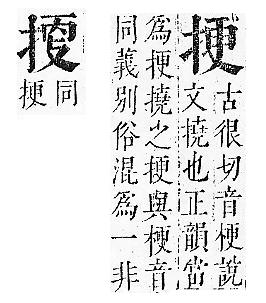 挭
古很切音梗說
文撓也正韻當
爲挭撓之挭與梗音
同義别俗混爲一非
同
挭